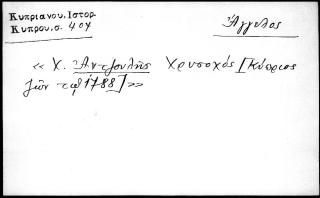 Κυπριανου, Ιστορ.
Κυπρου, σ. 404
Άγγελος
« Χ. Ἀντζουλῆς Χρυσοχός [Κύπριος
ζῶν τῷ 1788] »